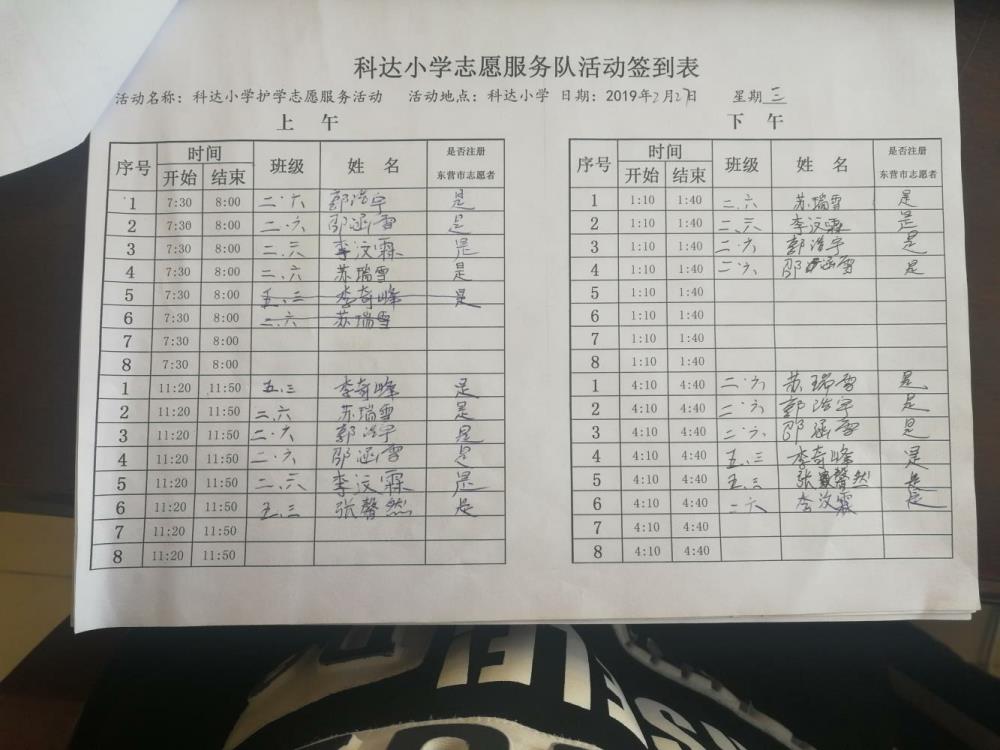 科达小学志愿服务队活动签到表
活动名称：科达小学护学志愿服务活动 活动地点：科达小学 日期：2019年2月27日 星期三
上 午
序号 时间 班级 姓 名 是否注册东营市志愿者
开始 结束
1 7:30 8:00 二.六 郭浩宇 是
2 7:30 8:00 二.六 邵涵雪 是
3 7:30 8:00 二.六 李汶霖 是
4 7:30 8:00 二.六 苏瑞雪 是
5 7:30 8:00 五.三 李奇峰 是
6 7:30 8:00 二.六 苏瑞雪
7 7:30 8:00
8 7:30 8:00
1 11:20 11:50 五.三 李奇峰 是
2 11:20 11:50 二.六 苏瑞雪 是
3 11:20 11:50 二.六 郭浩宇 是
4 11:20 11:50 二.六 邵涵雪 是
5 11:20 11:50 二.六 李汶霖 是
6 11:20 11:50 五.三 张馨然 是
7 11:20 11:50
8 11:20 11:50
下 午
序号 时间 班级 姓 名 是否注册东营市志愿者
开始 结束
1 1:10 1:40 二.六 苏瑞雪 是
2 1:10 1:40 二.六 李汶霖 是
3 1:10 1:40 二.六 郭浩宇 是
4 1:10 1:40 二.六 邵涵雪 是
5 1:10 1:40
6 1:10 1:40
7 1:10 1:40
8 1:10 1:40
1 4:10 4:40 二.六 苏瑞雪 是
2 4:10 4:40 二.六 郭浩宇 是
3 4:10 4:40 二.六 邵涵雪 是
4 4:10 4:40 五.三 李奇峰 是
5 4:10 4:40 五.三 张馨然 是
6 4:10 4:40 二六 李汶霖 是
7 4:10 4:40
8 4:10 4:40